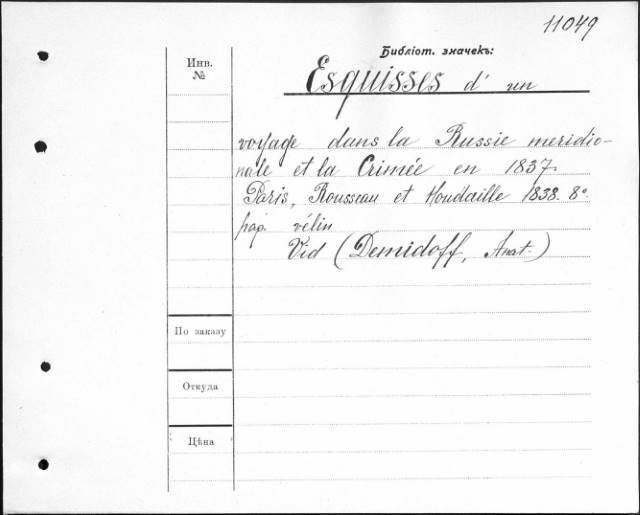 11049
Библіот. значекъ:
Инв.
№
Esquisses d' un
voyage dans la Russie meridio-
nale et la Crimée en 1837.
Paris, Rousseau et Houdaille 1838. 8°
pap. vélin
Vid (Demidoff, Anat.)
По заказу
Откуда
Цѣна